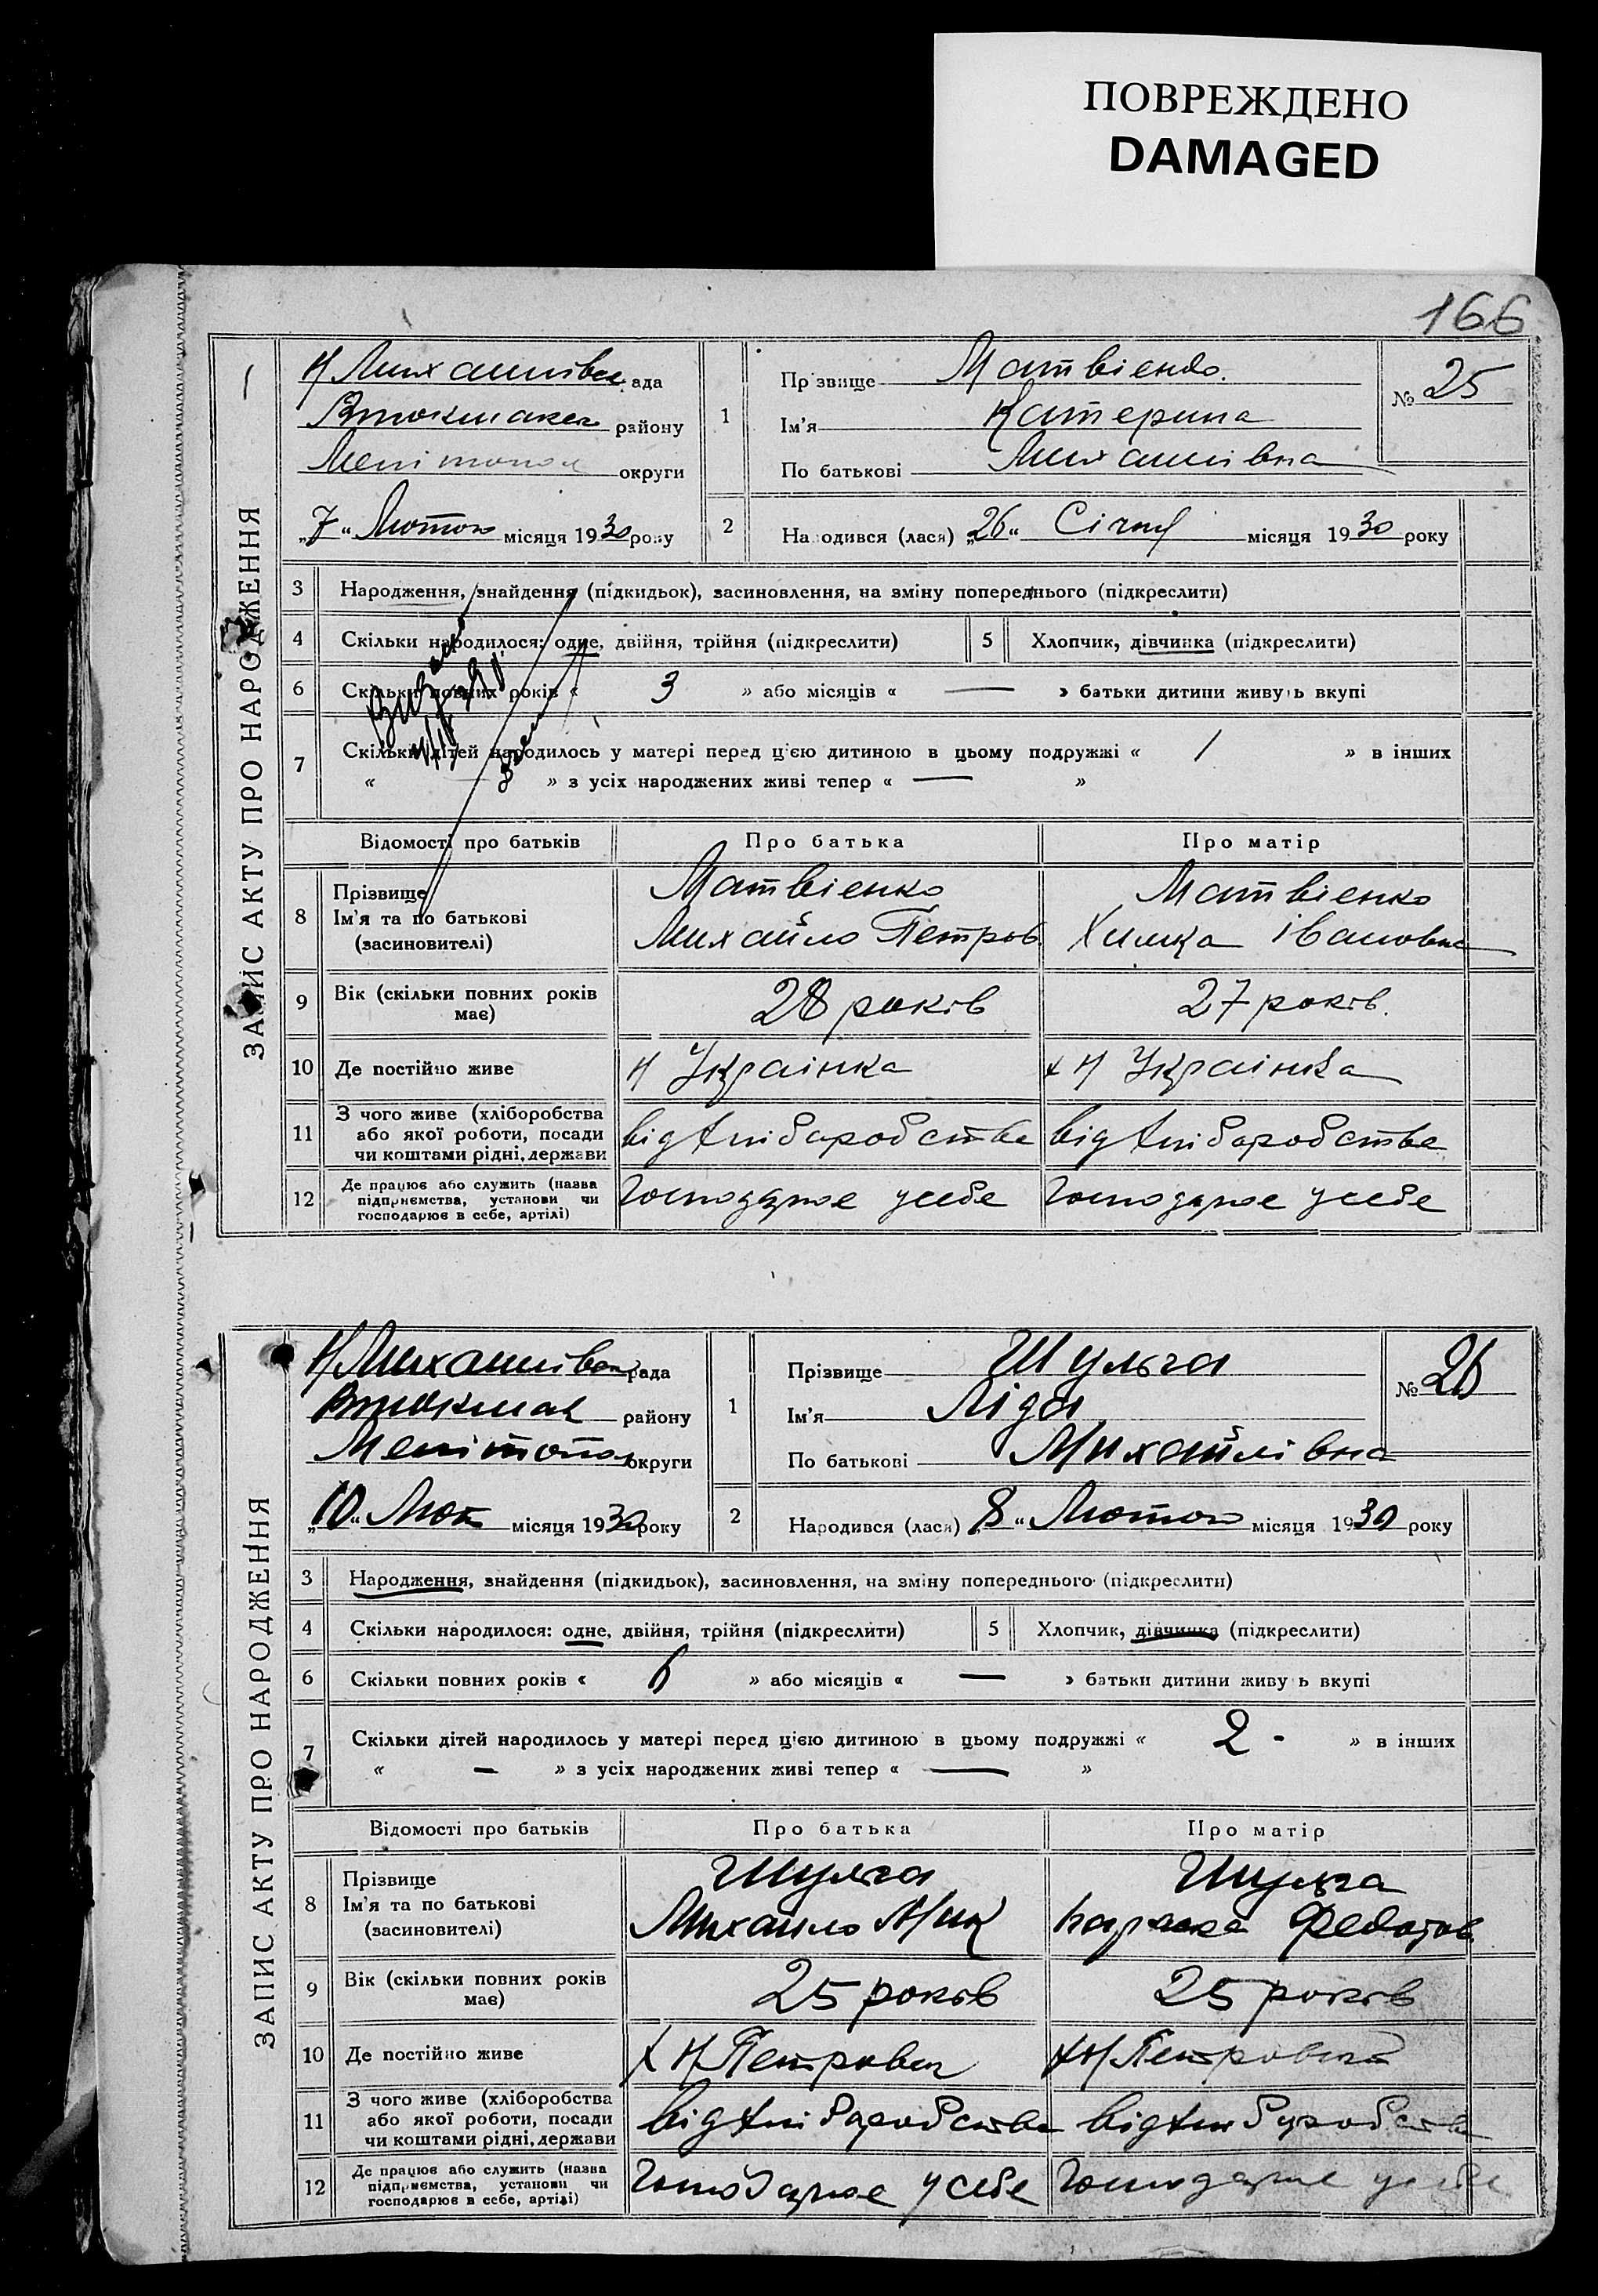 ПОВРЕЖДЕНО
DAMAGED
166
ЗАПИС АКТУ ПРО НАРОДЖЕННЯ
Н Михайлівс рада
Втокмакс району
Мелітопол округи
„7“ Лютого місяця 1930 року
1 Прізвище Матвієнко.
№ 25
Ім'я Катерина
По батькові Михайлівна
2 Народився (лася) „26“ Січня місяця 1930 року
3 Народження, знайдення (підкидьок), засиновлення, на зміну попереднього (підкреслити)
4 Скільки народилося: одне, двійня, трійня (підкреслити) 5 Хлопчик, дівчинка (підкреслити)
6 Скільки повних років « 3 » або місяців « — » батьки дитини живуть вкупі
7 Скільки дітей народилось у матері перед цією дитиною в цьому подружжі « 1 » в інших
« — » з усіх народжених живі тепер « — »
Відомості про батьків Про батька Про матір
8 Прізвище Матвієнко Матвієнко
Ім'я та по батькові Михайло Петров. Химка Івановна
(засиновителі)
9 Вік (скільки повних років 28 років 27 років.
має)
10 Де постійно живе Н Українка х Н Українка
11 З чого живе (хліборобства від хліборобства від хліборобства
або якої роботи, посади
чи коштами рідні, держави
12 Де працює або служить (назва Господарює у себе Господарює у себе
підприємства, установи чи
господарює в себе, артілі)
ЗАПИС АКТУ ПРО НАРОДЖЕННЯ
Н Михайлівск рада
Втокмак району
Мелітопол округи
„10“ Лют місяця 1930 року
1 Прізвище Шульга
№ 26
Ім'я Ліда
По батькові Михайлівна
2 Народився (лася) „8“ Лютого місяця 1930 року
3 Народження, знайдення (підкидьок), засиновлення, на зміну попереднього (підкреслити)
4 Скільки народилося: одне, двійня, трійня (підкреслити) 5 Хлопчик, дівчинка (підкреслити)
6 Скільки повних років « 6 » або місяців « — » батьки дитини живуть вкупі
7 Скільки дітей народилось у матері перед цією дитиною в цьому подружжі « 2 - » в інших
« — » з усіх народжених живі тепер « — »
Відомості про батьків Про батька Про матір
8 Прізвище Шульга Шульга
Ім'я та по батькові Михайло Мик Федотов
(засиновителі)
9 Вік (скільки повних років 25 років 25 років
має)
10 Де постійно живе х Н Петровка х Н Петровка
11 З чого живе (хліборобства від хліборобства від хліборобства
або якої роботи, посади
чи коштами рідні, держави
12 Де працює або служить (назва Господарює у себе Господарює у себе
підприємства, установи чи
господарює в себе, артілі)